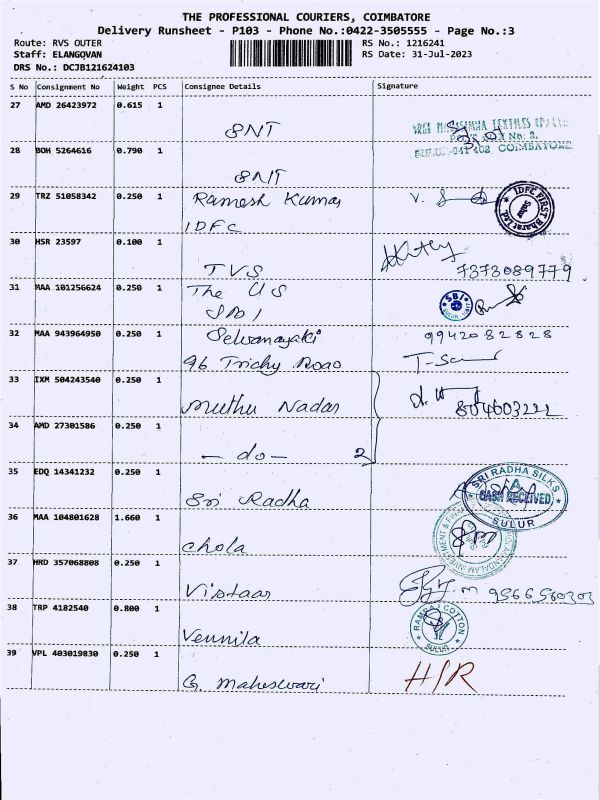 THE PROFESSIONAL COURIERS, COIMBATORE
Delivery Runsheet - P103 - Phone No.:0422-3505555 - Page No.:3
Route: RVS OUTER
Staff: ELANGOVAN
DRS No.: DCJB121624103
RS No.: 1216241
RS Date: 31-Jul-2023
S No Consignment No Weight PCS Consignee Details Signature
27 AMD 26423972 0.615 1
SNT
TEXTILES
No: 2.
402 COIMBATORE
28 BOH 5264616 0.790 1
SNT
29 TRZ 51058342 0.250 1 Ramesh Kumar
IDFC
V.
IDFC FIRST Bharat Ltd
Sulur
30 HSR 23597 0.100 1
TVS
7373089779
31 MAA 101256624 0.250 1 The U S
SBI
SBI
32 MAA 943964950 0.250 1 Selvanayaki 9942082828
96 Trichy Road
33 IXM 504243540 0.250 1
Muthu Nadar
34 AMD 27301586 0.250 1
- do - 2
35 EDQ 14341232 0.250 1
Sri Radha
SRI RADHA SILKS
CASH RECEIVED
SULUR
36 MAA 104801628 1.660 1
Chola
INVESTMENT &
37 HRD 357068808 0.250 1
Vistaar
9566560303
38 TRP 4182540 0.800 1
Vennila
RAMRAJ COTTON
SULUR
39 VPL 403019830 0.250 1
G. Maheswari
HSR